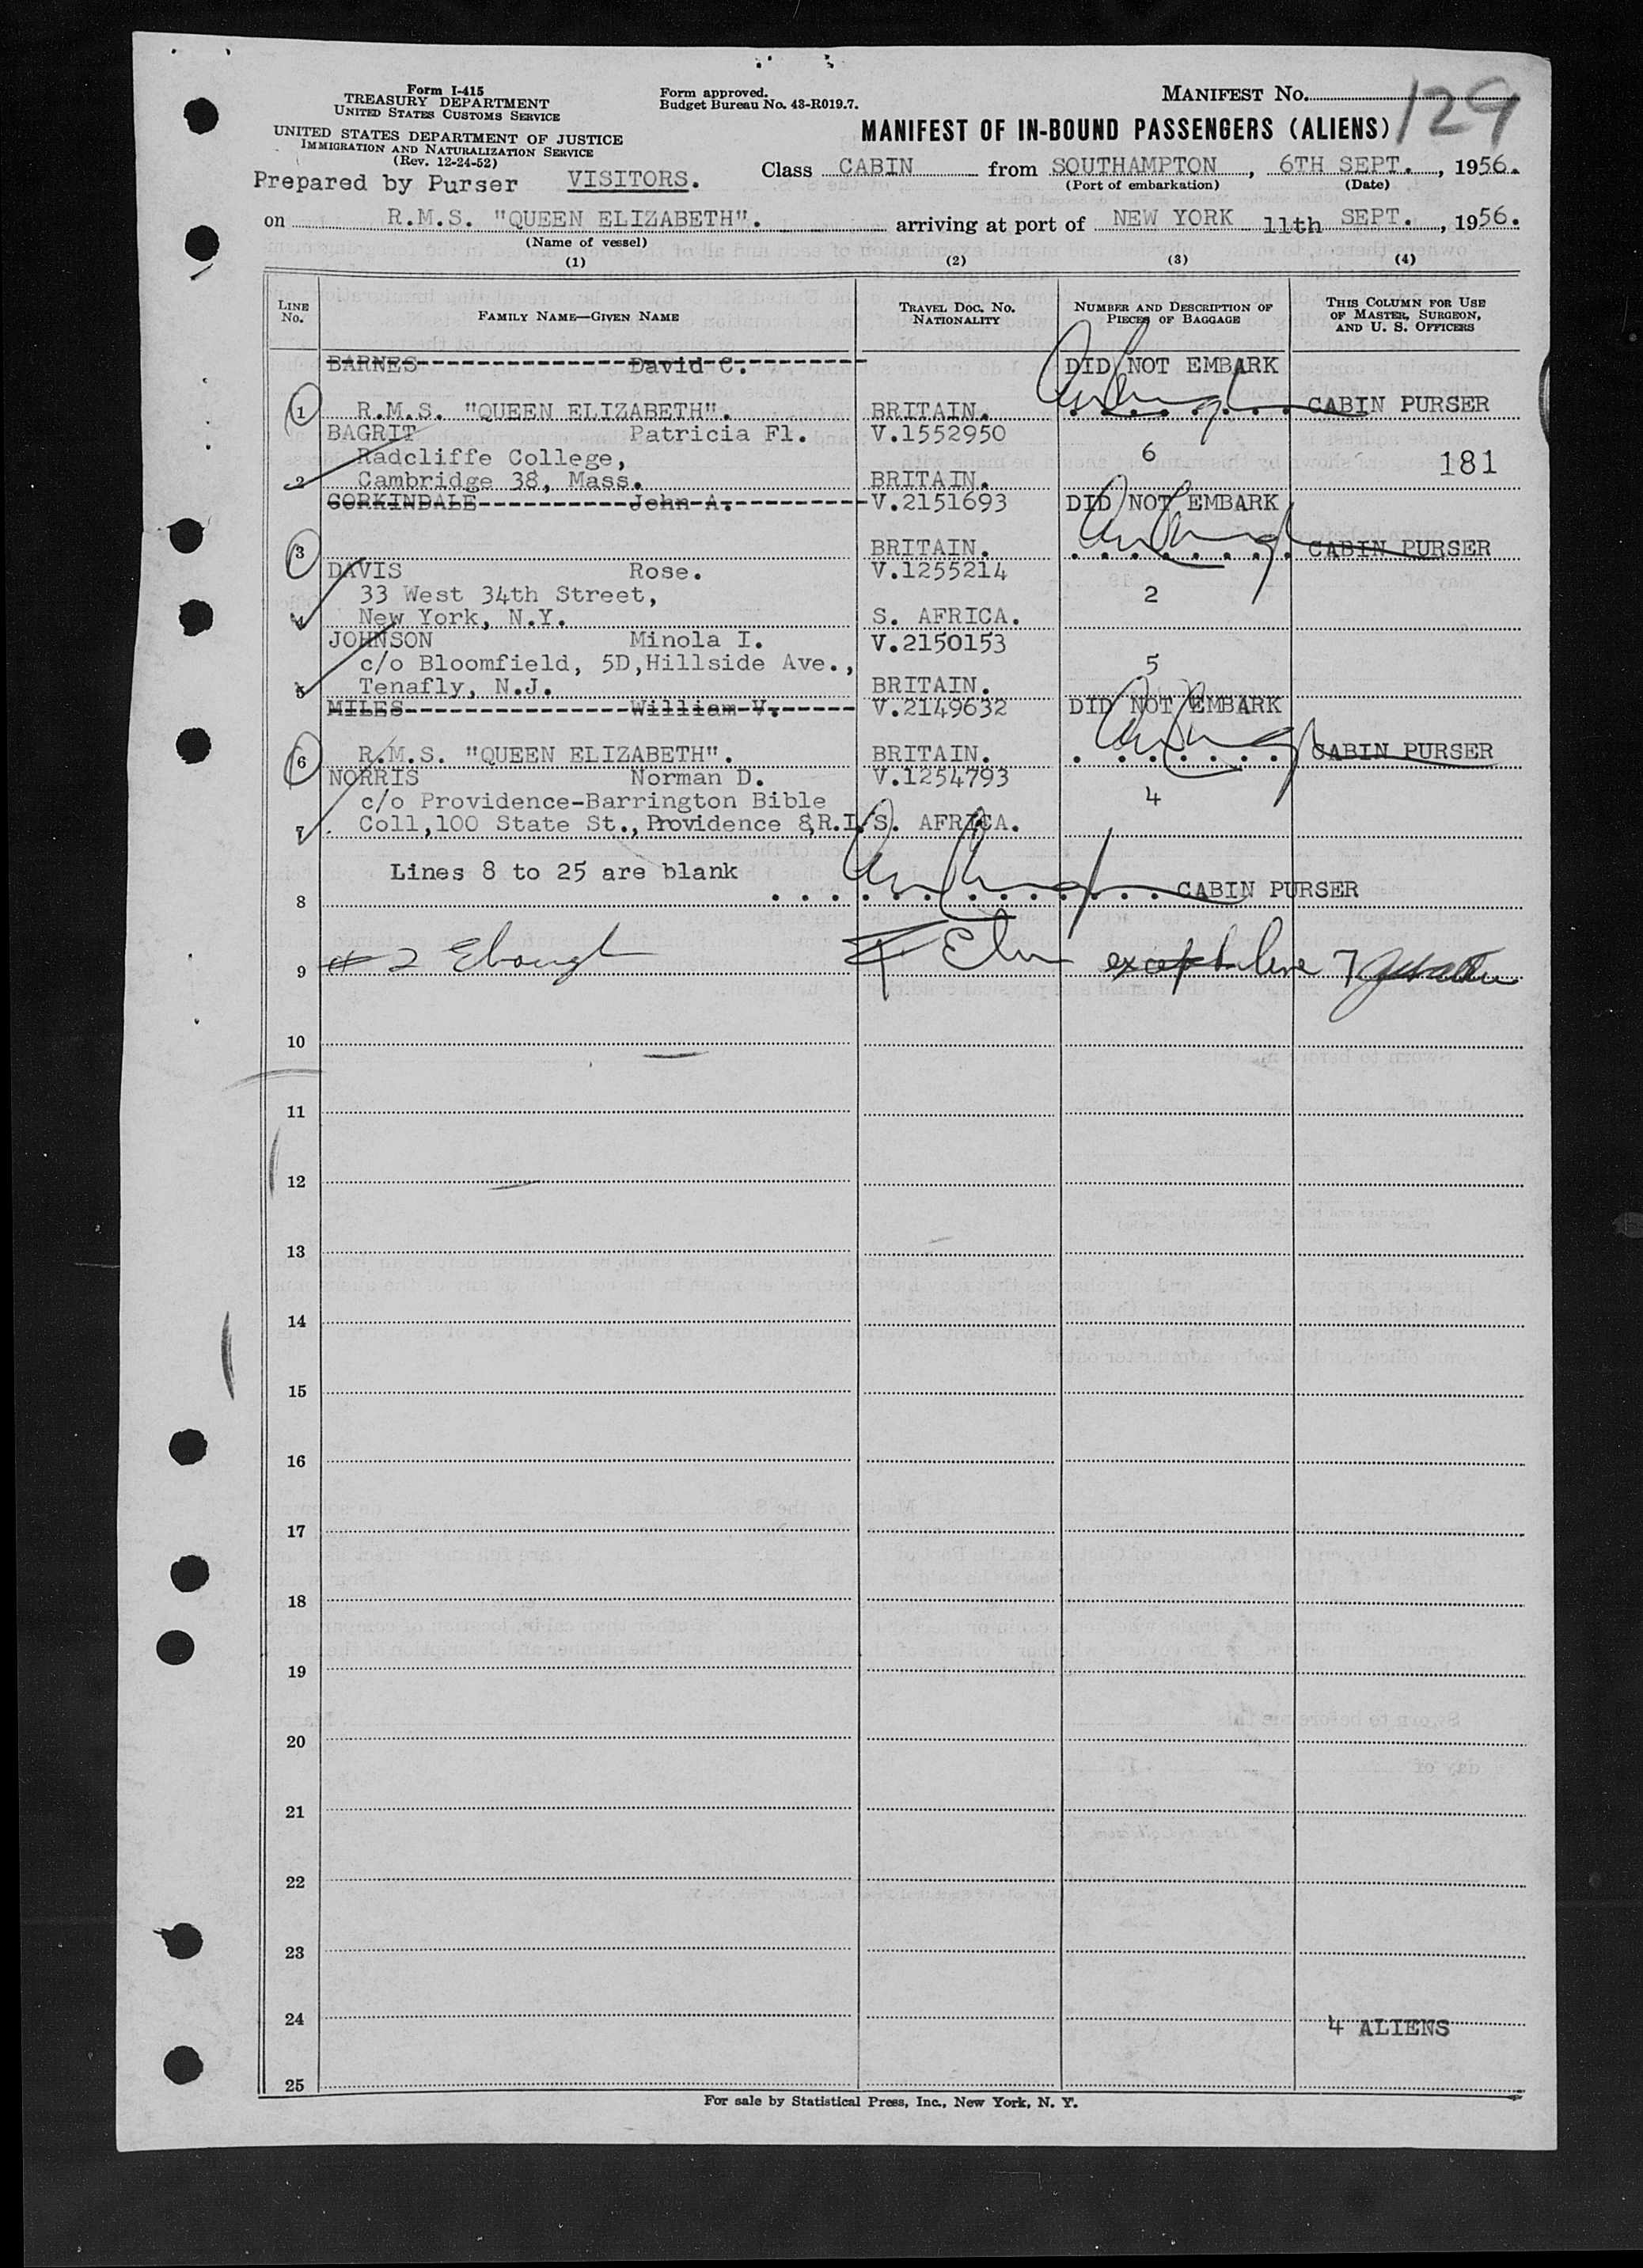 Form I-415
TREASURY DEPARTMENT
UNITED STATES CUSTOMS SERVICE
UNITED STATES DEPARTMENT OF JUSTICE
IMMIGRATION AND NATURALIZATION SERVICE
(Rev. 12-24-52)
Form approved.
Budget Bureau No. 43-R019.7.
MANIFEST No. 129
MANIFEST OF IN-BOUND PASSENGERS (ALIENS)
Prepared by Purser VISITORS. Class CABIN from SOUTHAMPTON, 6TH SEPT., 1956.
(Port of embarkation) (Date)
on R.M.S. "QUEEN ELIZABETH". arriving at port of NEW YORK 11th SEPT., 1956.
(Name of vessel)
(1) (2) (3) (4)
LINE No. FAMILY NAME—GIVEN NAME TRAVEL DOC. NO. NATIONALITY NUMBER AND DESCRIPTION OF PIECES OF BAGGAGE THIS COLUMN FOR USE OF MASTER, SURGEON, AND U. S. OFFICERS
BARNES David C. DID NOT EMBARK
1 R.M.S. "QUEEN ELIZABETH". BRITAIN. CABIN PURSER
BAGRIT Patricia Fl. V.1552950
Radcliffe College, 6 181
2 Cambridge 38, Mass. BRITAIN.
CORKINDALE John A. V.2151693 DID NOT EMBARK
3 BRITAIN. CABIN PURSER
DAVIS Rose. V.1255214
33 West 34th Street, 2
4 New York, N.Y. S. AFRICA.
JOHNSON Minola I. V.2150153
c/o Bloomfield, 5D,Hillside Ave., 5
5 Tenafly, N.J. BRITAIN.
MILES William V. V.2149632 DID NOT EMBARK
6 R.M.S. "QUEEN ELIZABETH". BRITAIN. CABIN PURSER
NORRIS Norman D. V.1254793
c/o Providence-Barrington Bible 4
7 Coll,100 State St., Providence 8,R.I. S. AFRICA.
Lines 8 to 25 are blank
8 CABIN PURSER
9 # 2 except line 7
10
11
12
13
14
15
16
17
18
19
20
21
22
23
24 4 ALIENS
25
For sale by Statistical Press, Inc., New York, N. Y.